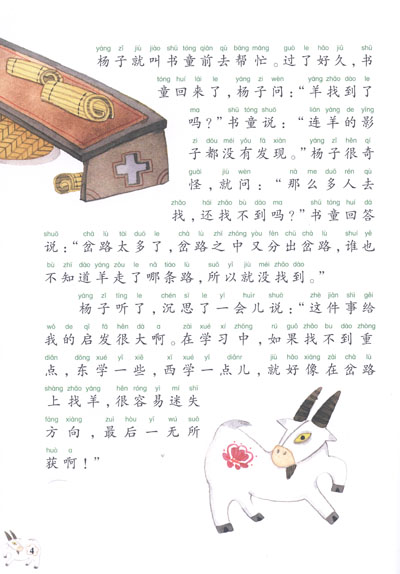 yáng zǐ jiù jiào shū tóng qián qù bāng máng guò le hǎo jiǔ shū
杨子就叫书童前去帮忙。过了好久，书
tóng huí lái le yáng zǐ wèn yáng zhǎo dào le
童回来了，杨子问：“羊找到了
ma shū tóng shuō lián yáng de yǐng
吗？”书童说：“连羊的影
zi dōu méi yǒu fā xiàn yáng zǐ hěn qí
子都没有发现。”杨子很奇
guài jiù wèn nà me duō rén qù
怪，就问：“那么多人去
zhǎo hái zhǎo bú dào ma shū tóng huí dá
找，还找不到吗？”书童回答
shuō chà lù tài duō le chà lù zhī zhōng yòu fēn chū chà lù shuí yě
说：“岔路太多了，岔路之中又分出岔路，谁也
bù zhī dào yáng zǒu le nǎ tiáo lù suǒ yǐ jiù méi zhǎo dào
不知道羊走了哪条路，所以就没找到。”
yáng zǐ tīng le chén sī le yí huìr shuō zhè jiàn shì gěi
杨子听了，沉思了一会儿说：“这件事给
wǒ de qǐ fā hěn dà a zài xué xí zhōng rú guǒ zhǎo bú dào zhòng
我的启发很大啊。在学习中，如果找不到重
diǎn dōng xué yì xiē xī xué yì diǎnr jiù hǎo xiàng zài chà lù
点，东学一些，西学一点儿，就好像在岔路
shàng zhǎo yáng hěn róng yì mí shī
上找羊，很容易迷失
fāng xiàng zuì hòu yì wú suǒ
方向，最后一无所
huò a
获啊！”
4